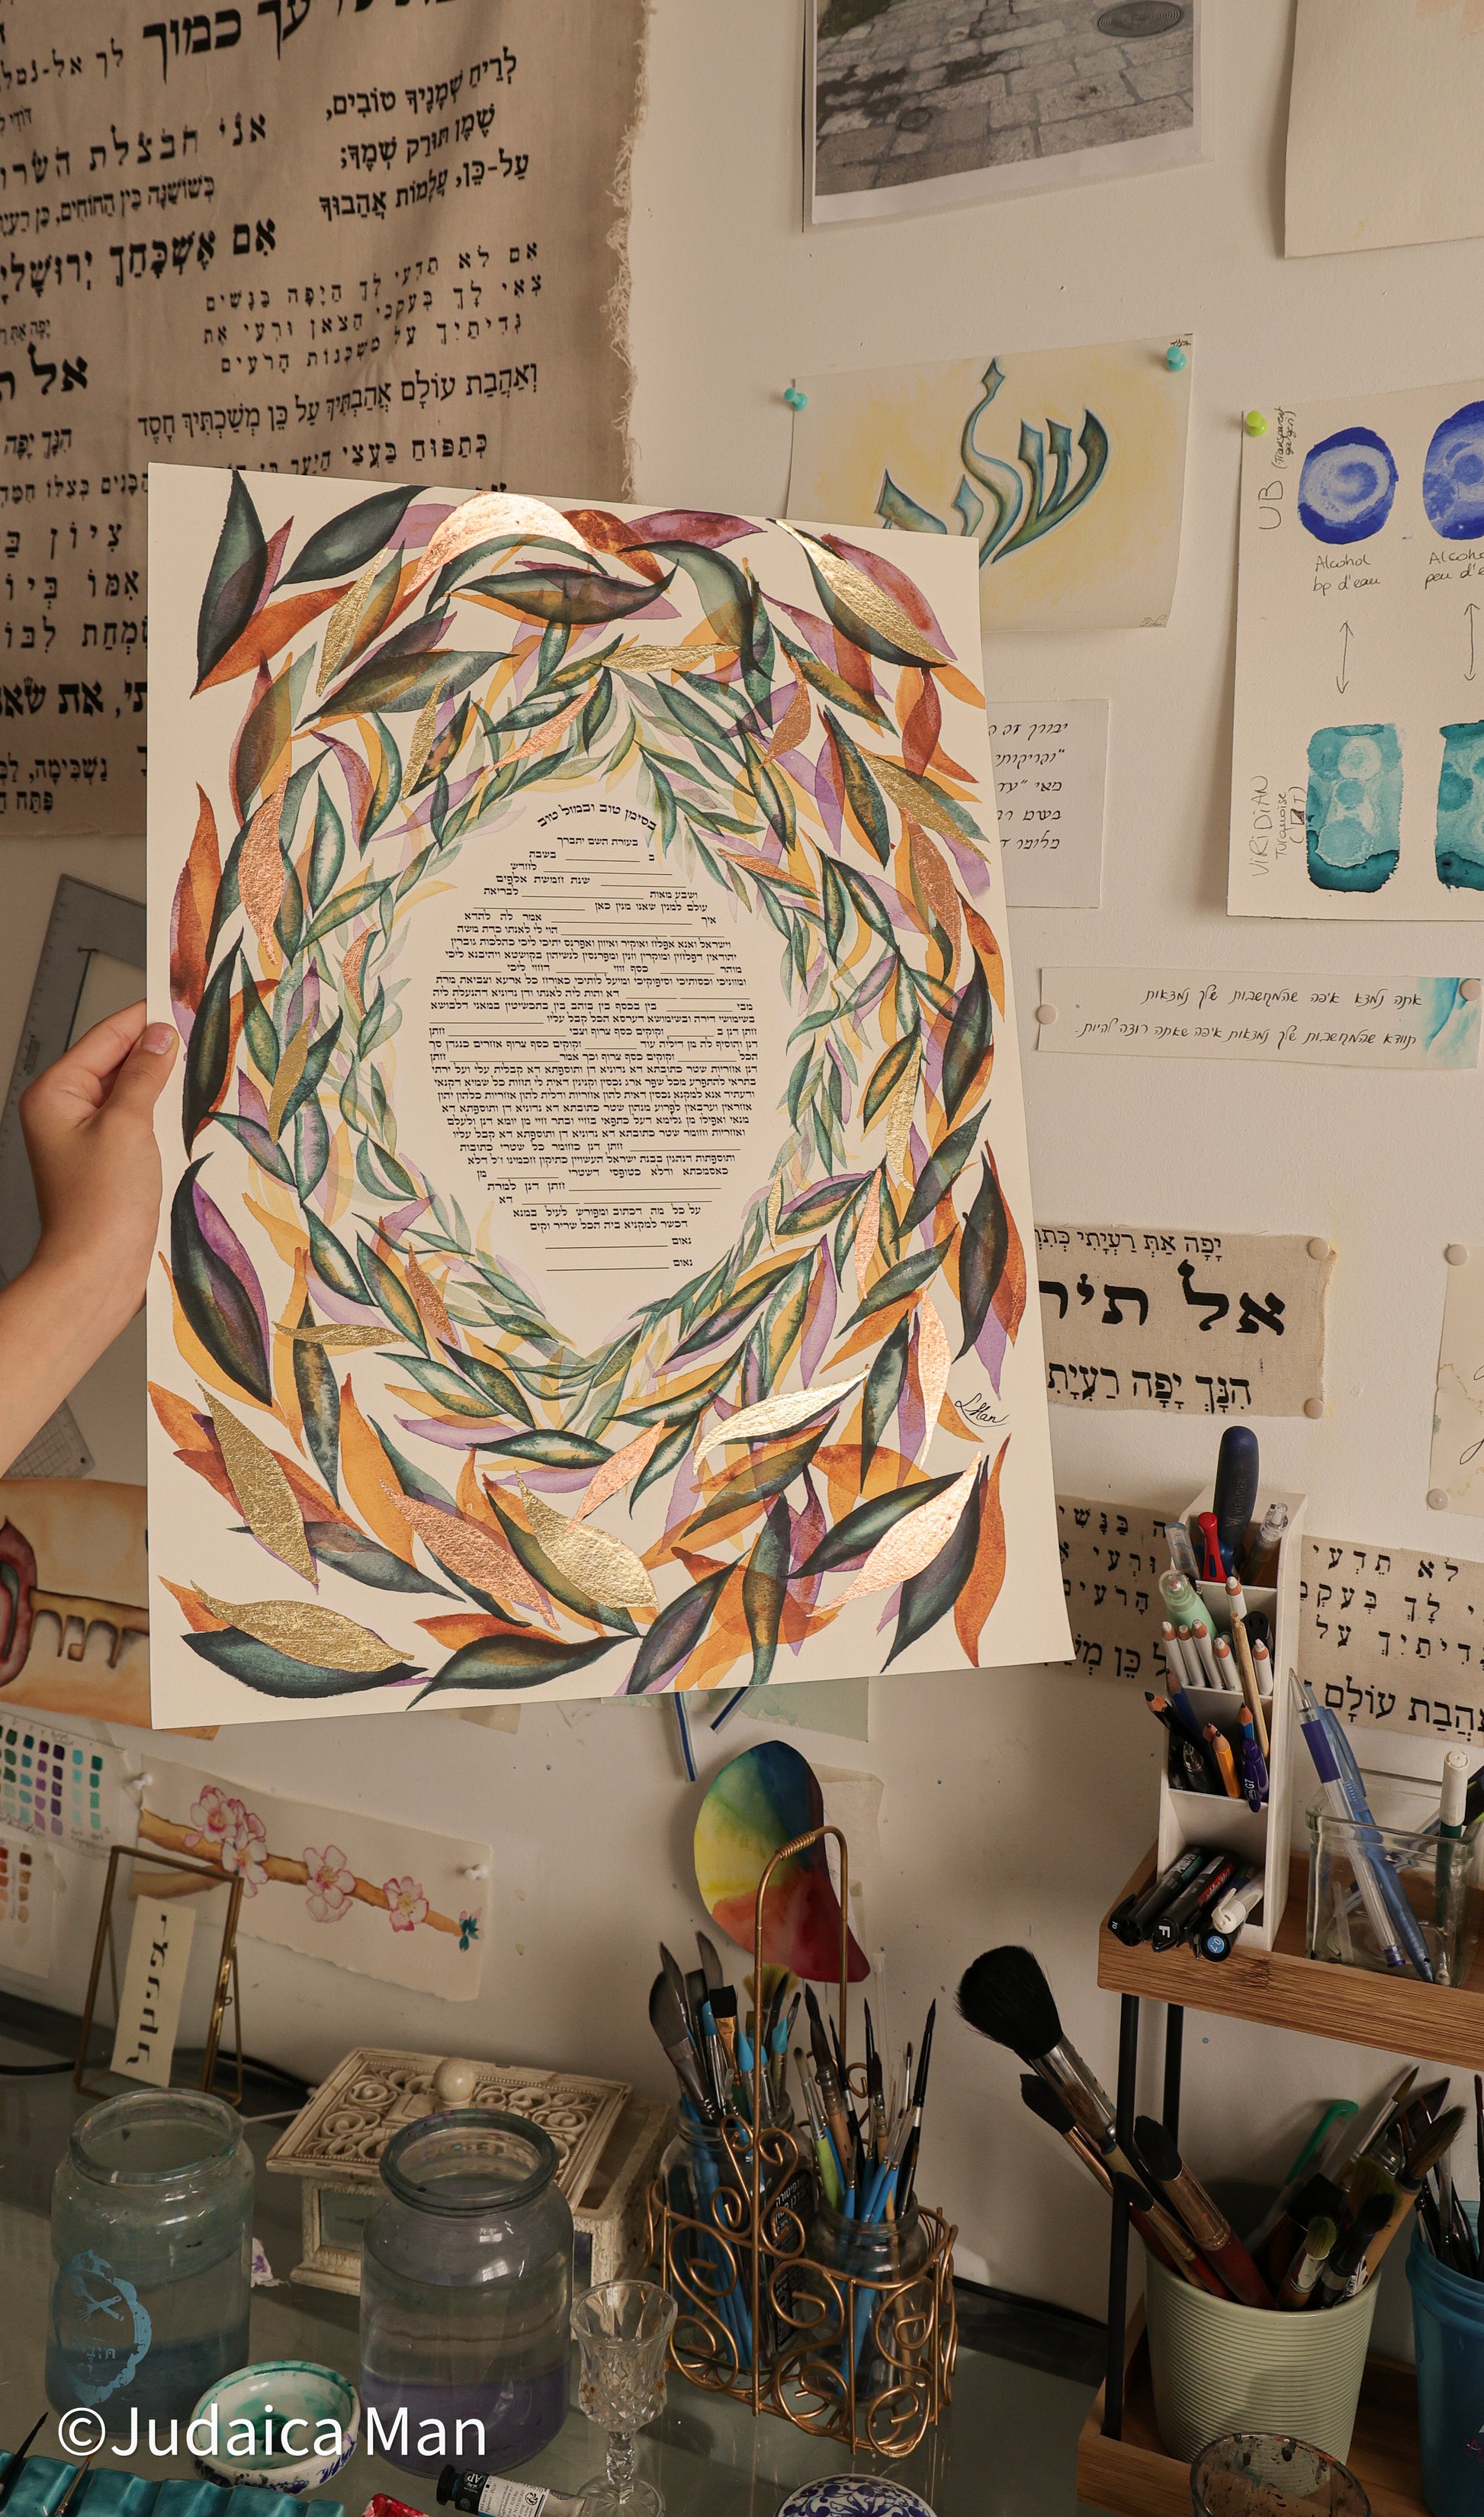 עך כמוך
לך אל-
לְרֵיחַ שְׁמָנֶיךָ טוֹבִים,
שֶׁמֶן תּוּרַק שְׁמֶךָ;
עַל-כֵּן, עֲלָמוֹת אֲהֵבוּךָ
אני חבצלת השרו
כְּשׁוֹשַׁנָּה בֵּין הַחוֹחִים, כֵּן רַעְיָ
אִם אֶשְׁכָּחֵךְ יְרוּשָׁלִָ
אִם לֹא תֵדְעִי לָךְ הַיָּפָה בַּנָּשִׁים
צְאִי לָךְ בְּעִקְבֵי הַצֹּאן וּרְעִי אֶת
גְּדִיֹּתַיִךְ עַל מִשְׁכְּנוֹת הָרֹעִים
אל ת
וְאַהֲבַת עוֹלָם אֲהַבְתִּיךְ עַל כֵּן מְשַׁכְתִּיךְ חָסֶד
הִנָּךְ יָפָה
כְּתַפּוּחַ בַּעֲצֵי הַיַּעַר
צִיּוֹן
אִמּוֹ בְּיוֹ
שִׂמְחַת לִבּוֹ
נַשְׁכִּימָה
בסימן טוב ובמזל טוב
בעזרת השם יתברך
ב ________ בשבת
________ לחדש
________ שנת חמשת אלפים
ושבע מאות ________ לבריאת
עולם למנין שאנו מנין כאן ________
איך ________ אמר לה להדא
________ הוי לי לאנתו כדת משה
וישראל ואנא אפלח ואוקיר ואיזון ואפרנס יתיכי ליכי כהלכות גוברין
יהודאין דפלחין ומוקרין וזנין ומפרנסין לנשיהון בקושטא ויהיבנא ליכי
מוהר ________ כסף זוזי ________ דחזי ליכי ________
ומזוניכי וכסותיכי וסיפוקיכי ומיעל לותיכי כאורח כל ארעא וצביאת מרת
________ דא והות ליה לאנתו ודן נדוניא דהנעלת ליה
מבי ________ בין בכסף בין בזהב בין בתכשיטין במאני דלבושא
בשימושי דירה ובשימושא דערסא הכל קבל עליו ________
חתן דנן ב ________ זקוקים כסף צרוף וצבי ________ חתן
דנן והוסיף לה מן דיליה עוד ________ זקוקים כסף צרוף אחרים כנגדן סך
הכל ________ זקוקים כסף צרוף וכך אמר ________ חתן
דנן אחריות שטר כתובתא דא נדוניא דן ותוספתא דא קבלית עלי ועל ירתי
בתראי להתפרע מכל שפר ארג נכסין וקנינין דאית לי תחות כל שמיא דקנאי
ודעתיד אנא למקנא נכסין דאית להון אחריות ודלית להון אחריות כלהון יהון
אחראין וערבאין לפרוע מנהון שטר כתובתא דא נדוניא דן ותוספתא דא
מנאי ואפילו מן גלימא דעל כתפאי בחיי ובתר חיי מן יומא דנן ולעלם
ואחריות וחומר שטר כתובתא דא נדוניא דן ותוספתא דא קבל עליו
________ חתן דנן כחומר כל שטרי כתובות
ותוספתות דנהגין בבנת ישראל העשויין כתיקון חכמינו ז״ל דלא
כאסמכתא ודלא כטופסי דשטרי ________ מן
________ חתן דנן למרת
________ דא
על כל מה דכתוב ומפורש לעיל במנא
דכשר למקניא ביה הכל שריר וקים
נאום ________
נאום ________
LMan
UB (transparent
Alcohol
bp d'eau
Alcoho
peu d'e
VIRIDIAN
Turquoise
(T)
מאי "עד
אתה נמצא איפה שהמחשבות שלך נמצאות
תוודא שהמחשבות שלך נמצאות איפה שאתה רוצה להיות.
יָפָה אַתְּ רַעְיָתִי כְּתִרְ
אל תיר
הִנָּךְ יָפָה רַעְיָתִ
לֹא תֵדְעִי
לָךְ בְּעִקְבֵ
גְּדִיֹּתַיִךְ עַל
אַהֲבַת עוֹלָם
©Judaica Man